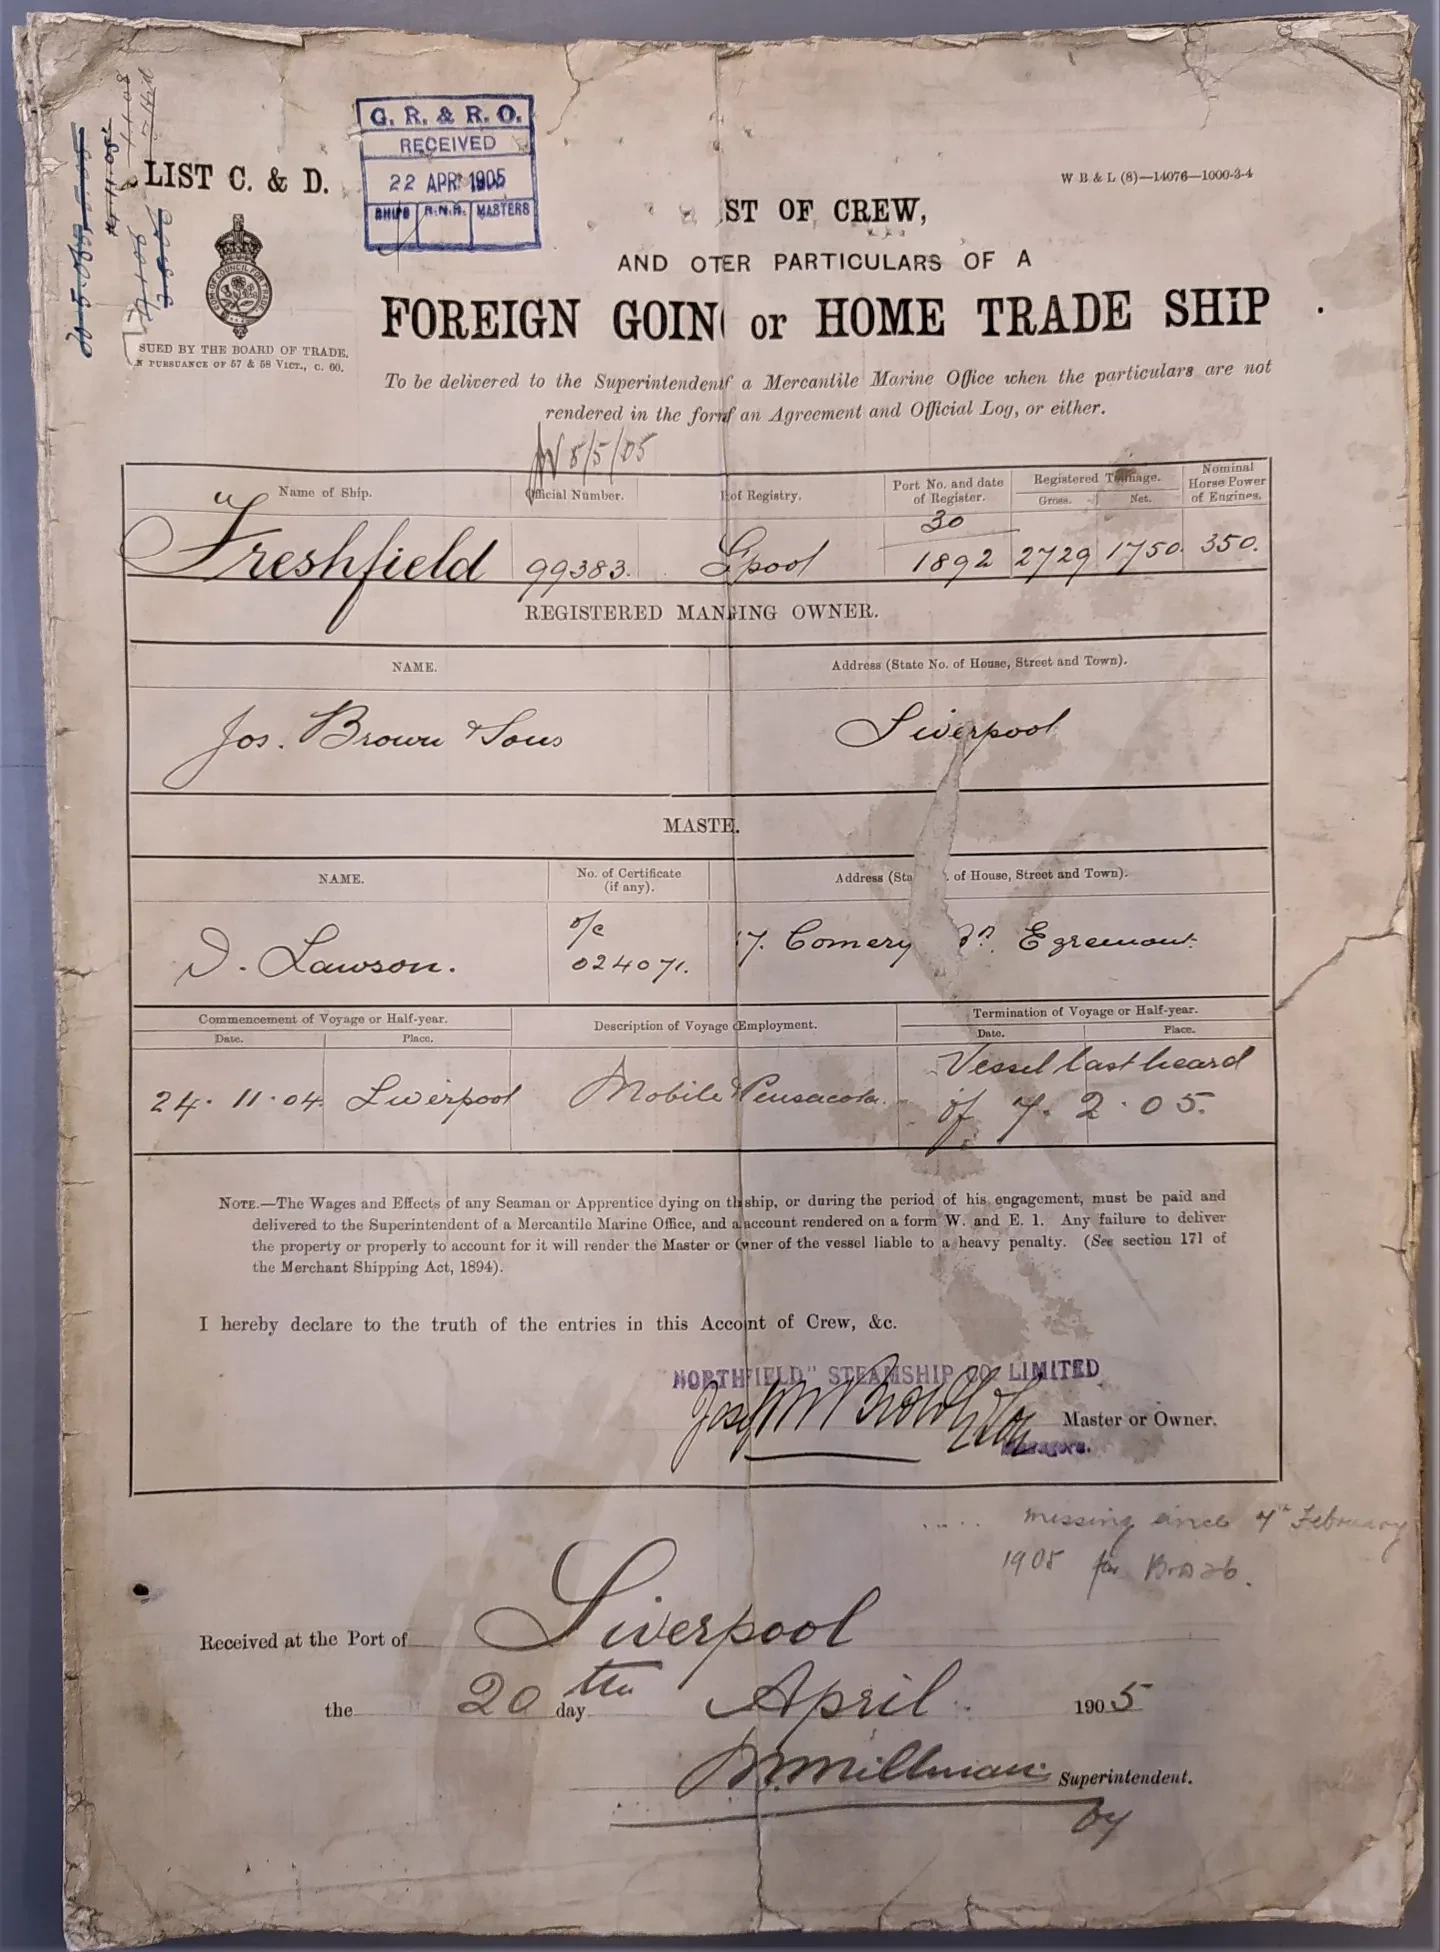 LIST C. & D.
G. R. & R. O.
RECEIVED
22 APR 1905
SHIPS R.N.R. MASTERS
W B & L (8)—14076—1000-3-4
ST OF CREW,
AND OTER PARTICULARS OF A
FOREIGN GOIN or HOME TRADE SHIP
SUED BY THE BOARD OF TRADE.
N PURSUANCE OF 57 & 58 VICT., C. 60.
To be delivered to the Superintendent f a Mercantile Marine Office when the particulars are not
rendered in the form f an Agreement and Official Log, or either.
8/5/05
Name of Ship. Official Number. of Registry. Port No. and date of Register. Registered Tonnage. Gross. Net. Nominal Horse Power of Engines.
"Freshfield 99383. L'pool 30 1892 2729 1750. 350.
REGISTERED MANGING OWNER.
NAME. Address (State No. of House, Street and Town).
Jos. Brown & Sons Liverpool
MASTE.
NAME. No. of Certificate (if any). Address (Sta . of House, Street and Town).
D. Lawson. o/c 024071. 7. Comery Egremont.
Commencement of Voyage or Half-year. Description of Voyage Employment. Termination of Voyage or Half-year.
Date. Place. Date. Place.
24. 11. 04. Liverpool Mobile & Pensacola. Vessel last heard
of 7. 2. 05.
NOTE.—The Wages and Effects of any Seaman or Apprentice dying on th ship, or during the period of his engagement, must be paid and
delivered to the Superintendent of a Mercantile Marine Office, and a account rendered on a form W. and E. 1. Any failure to deliver
the property or properly to account for it will render the Master or Owner of the vessel liable to a heavy penalty. (See section 171 of
the Merchant Shipping Act, 1894).
I hereby declare to the truth of the entries in this Account of Crew, &c.
NORTHFIELD" STEAMSHIP CO. LIMITED
Joseph Brown & Sons Master or Owner.
Managers.
missing since 7th February
1905 for
Received at the Port of Liverpool
the 20th day April 1905
Millman Superintendent.
by